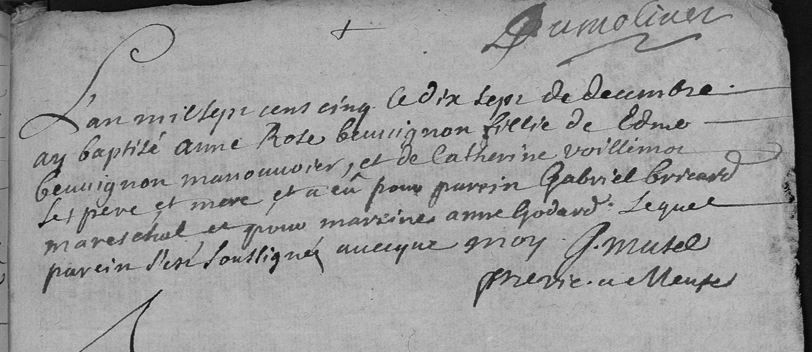 Dumoliner
L'an mil sept cens cinq le dix sept de decembre
ay baptisé anne Rose beuuignon fillie de Edme
beuuignon manouuvier, et de Catherine voillemot
ses pere et mere, et a eü pour parein Gabriel bricard
mareschal et pour mareine anne Godard. Lequel
parein s'est soussigné auecque moy J. Mutel